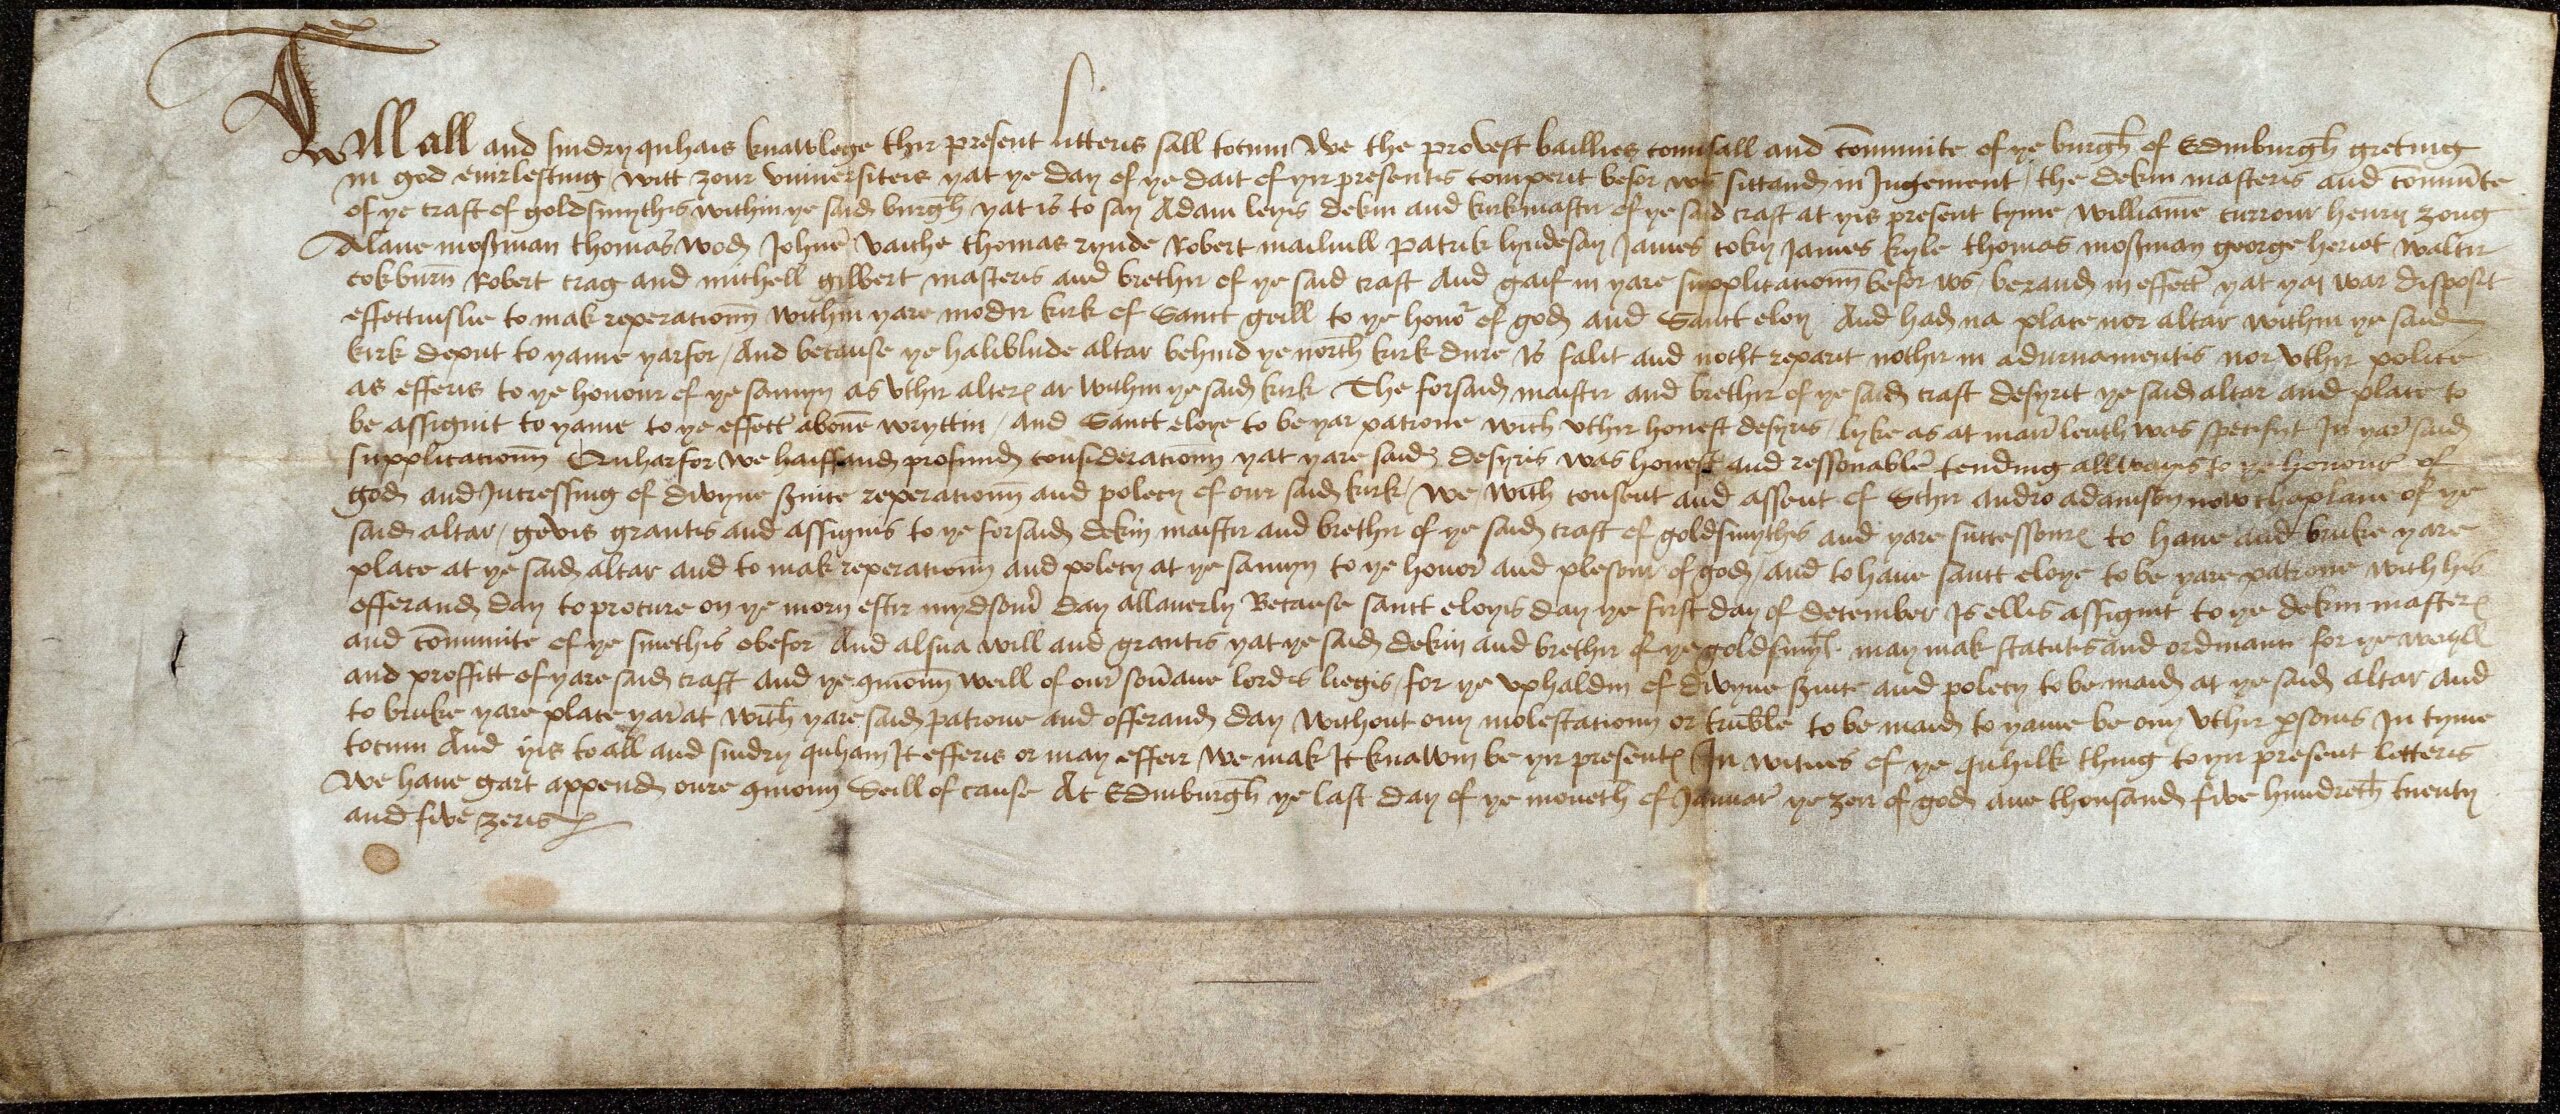 Till all and sindry quhais knawlege thir present litteris sall tocum We the provest baillies counsall and cõmunite of ye burgh of Edinburgh greting
in god evirlesting witt zour universiteis yat ye day of ye dait of yir presentis comperit befor ws sittand in Jugement / the dekin masteris and cõmunite
of ye craft of goldsmythis within ye said burgh / yat is to say Adam leyis dekin and kirkmastir of ye said craft at yis present tyme williame currour henry zong
Alane mosman thomas wod Johne vaiche thomas rynde Robert mailuill patrik lyndesay James coky James kyle thomas mosman george heriot waltir
cokburn Robert crag and michell gilbert masteris and brethir of ye said craft And gaif in yare supplicatioun befor ws / berand in effect yat yai war disposit
effectuislie to mak reperatioun within yare modir kirk of Sanct geill to ye honor of god and Sanct eloy And had na place nor altar within ye said
kirk deput to yame yarfor / And because ye haliblude altar behind ye north kirk dure Is falit and nocht reparit nothir in adurnamentis nor vthir police
as efferis to ye honour of ye samyn as vthir alteris ar within ye said kirk The forsaid maistir and brethir of ye said craft desyrit ye said altar and place to
be assignit to yame to ye effect abone wryttin / And Sanct eloye to be yar patrone with vthir honest desyris / lyke as at mair lenth was specifyt In yar said
supplicatioun Quharfor we haiffand profund consideratioun yat yare said desyris was honest and ressonable tending allwayis to ye honour of
god and Incressing of divyne seruice reperatioun and polecy of our said kirk / We with consent and assent of Schir andro adamson now chaplane of ye
said altar / gevis grantis and assignis to ye forsaid dekin maistir and brethir of ye said craft of goldsmythis and yare successouris to haue and bruke yare
place at ye said altar and to mak reperatioun and polecy at ye samyn to ye honor and plesour of god / and to haue sanct eloye to be yare patrone with his
offerand day to procure on ye morn eftir mydsomer day allanerly Becaese sanct eloyis day ye first day of december Is ellis assignit to ye dekin masteris
and cõmunite of ye smethis obefor And alsua will and grantis yat ye said dekin and brethir of ye goldsmythis may mak statutis and ordinanis for ye weyll
and proffitt of yare said craft and ye commoun weill of our souerane lordis liegis / for ye vphaldin of divyne seruice and polecy to be maid at ye said altar and
to bruke yare place yarat with yare said patrone and offerand day without ony molestatioun or truble to be maid to yame be ony vthir persons In tyme
tocum And yis to all and sindry quham It efferis or may effeir we mak It knawin be yir presentis In witnes of ye quhilk thing to yir present litteris
We haue gart append oure commoun Seill of cause At Edinburgh ye last day of ye moneth of Januar ye zeir of god ane thousand five hundreth tuenty
and five zeris